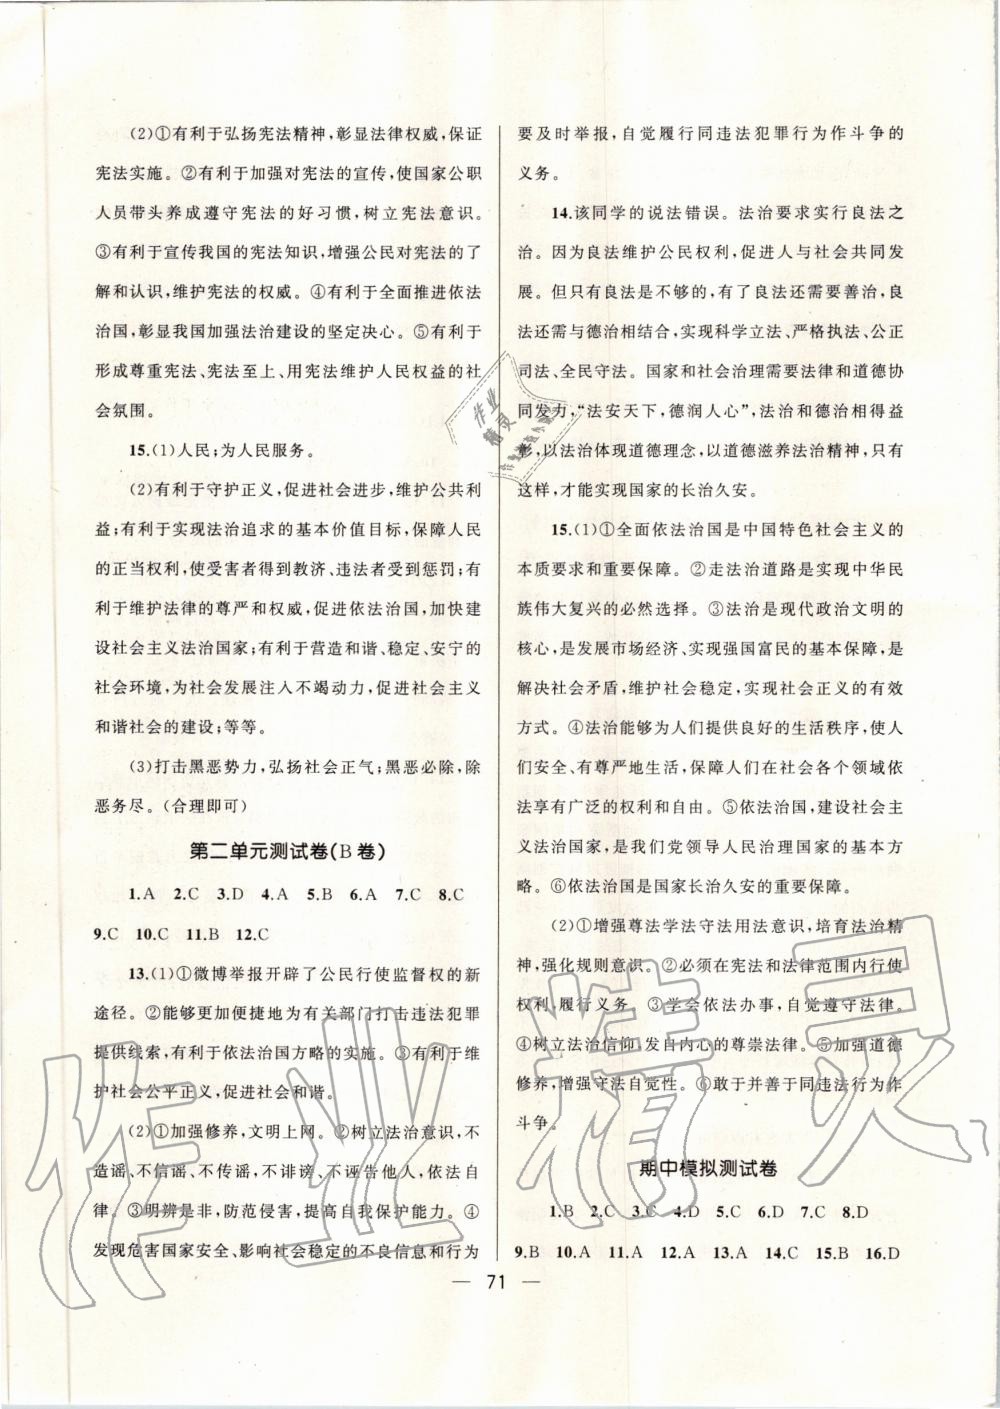 (2)①有利于弘扬宪法精神,彰显法律权威,保证
宪法实施。②有利于加强对宪法的宣传,使国家公职
人员带头养成遵守宪法的好习惯,树立宪法意识。
③有利于宣传我国的宪法知识,增强公民对宪法的了
解和认识,维护宪法的权威。④有利于全面推进依法
治国,彰显我国加强法治建设的坚定决心。⑤有利于
形成尊重宪法、宪法至上、用宪法维护人民权益的社
会氛围。
15.(1)人民;为人民服务。
(2)有利于守护正义,促进社会进步,维护公共利
益;有利于实现法治追求的基本价值目标,保障人民
的正当权利,使受害者得到救济、违法者受到惩罚;有
利于维护法律的尊严和权威,促进依法治国,加快建
设社会主义法治国家;有利于营造和谐、稳定、安宁的
社会环境,为社会发展注入不竭动力,促进社会主义
和谐社会的建设;等等。
(3)打击黑恶势力,弘扬社会正气;黑恶必除,除
恶务尽。(合理即可)
第二单元测试卷(B卷)
1.A 2.C 3.D 4.A 5.B 6.A 7.C 8.C
9.C 10.C 11.B 12.C
13.(1)①微博举报开辟了公民行使监督权的新
途径。②能够更加便捷地为有关部门打击违法犯罪
提供线索,有利于依法治国方略的实施。③有利于维
护社会公平正义,促进社会和谐。
(2)①加强修养,文明上网。②树立法治意识,不
造谣、不信谣、不传谣,不诽谤、不诬告他人,依法自
律。③明辨是非,防范侵害,提高自我保护能力。④
发现危害国家安全、影响社会稳定的不良信息和行为
要及时举报,自觉履行同违法犯罪行为作斗争的
义务。
14.该同学的说法错误。法治要求实行良法之
治。因为良法维护公民权利,促进人与社会共同发
展。但只有良法是不够的,有了良法还需要善治,良
法还需与德治相结合,实现科学立法、严格执法、公正
司法、全民守法。国家和社会治理需要法律和道德协
同发力,“法安天下,德润人心”,法治和德治相得益
彰,以法治体现道德理念,以道德滋养法治精神,只有
这样,才能实现国家的长治久安。
15.(1)①全面依法治国是中国特色社会主义的
本质要求和重要保障。②走法治道路是实现中华民
族伟大复兴的必然选择。③法治是现代政治文明的
核心,是发展市场经济、实现强国富民的基本保障,是
解决社会矛盾,维护社会稳定,实现社会正义的有效
方式。④法治能够为人们提供良好的生活秩序,使人
们安全、有尊严地生活,保障人们在社会各个领域依
法享有广泛的权利和自由。⑤依法治国,建设社会主
义法治国家,是我们党领导人民治理国家的基本方
略。⑥依法治国是国家长治久安的重要保障。
(2)①增强尊法学法守法用法意识,培育法治精
神,强化规则意识。②必须在宪法和法律范围内行使
权利,履行义务。③学会依法办事,自觉遵守法律。
④树立法治信仰,发自内心的尊崇法律。⑤加强道德
修养,增强守法自觉性。⑥敢于并善于同违法行为作
斗争。
期中模拟测试卷
1.B 2.C 3.C 4.D 5.C 6.D 7.C 8.D
9.B 10.A 11.A 12.A 13.A 14.C 15.B 16.D
— 71 —
作业精灵
作业
精灵